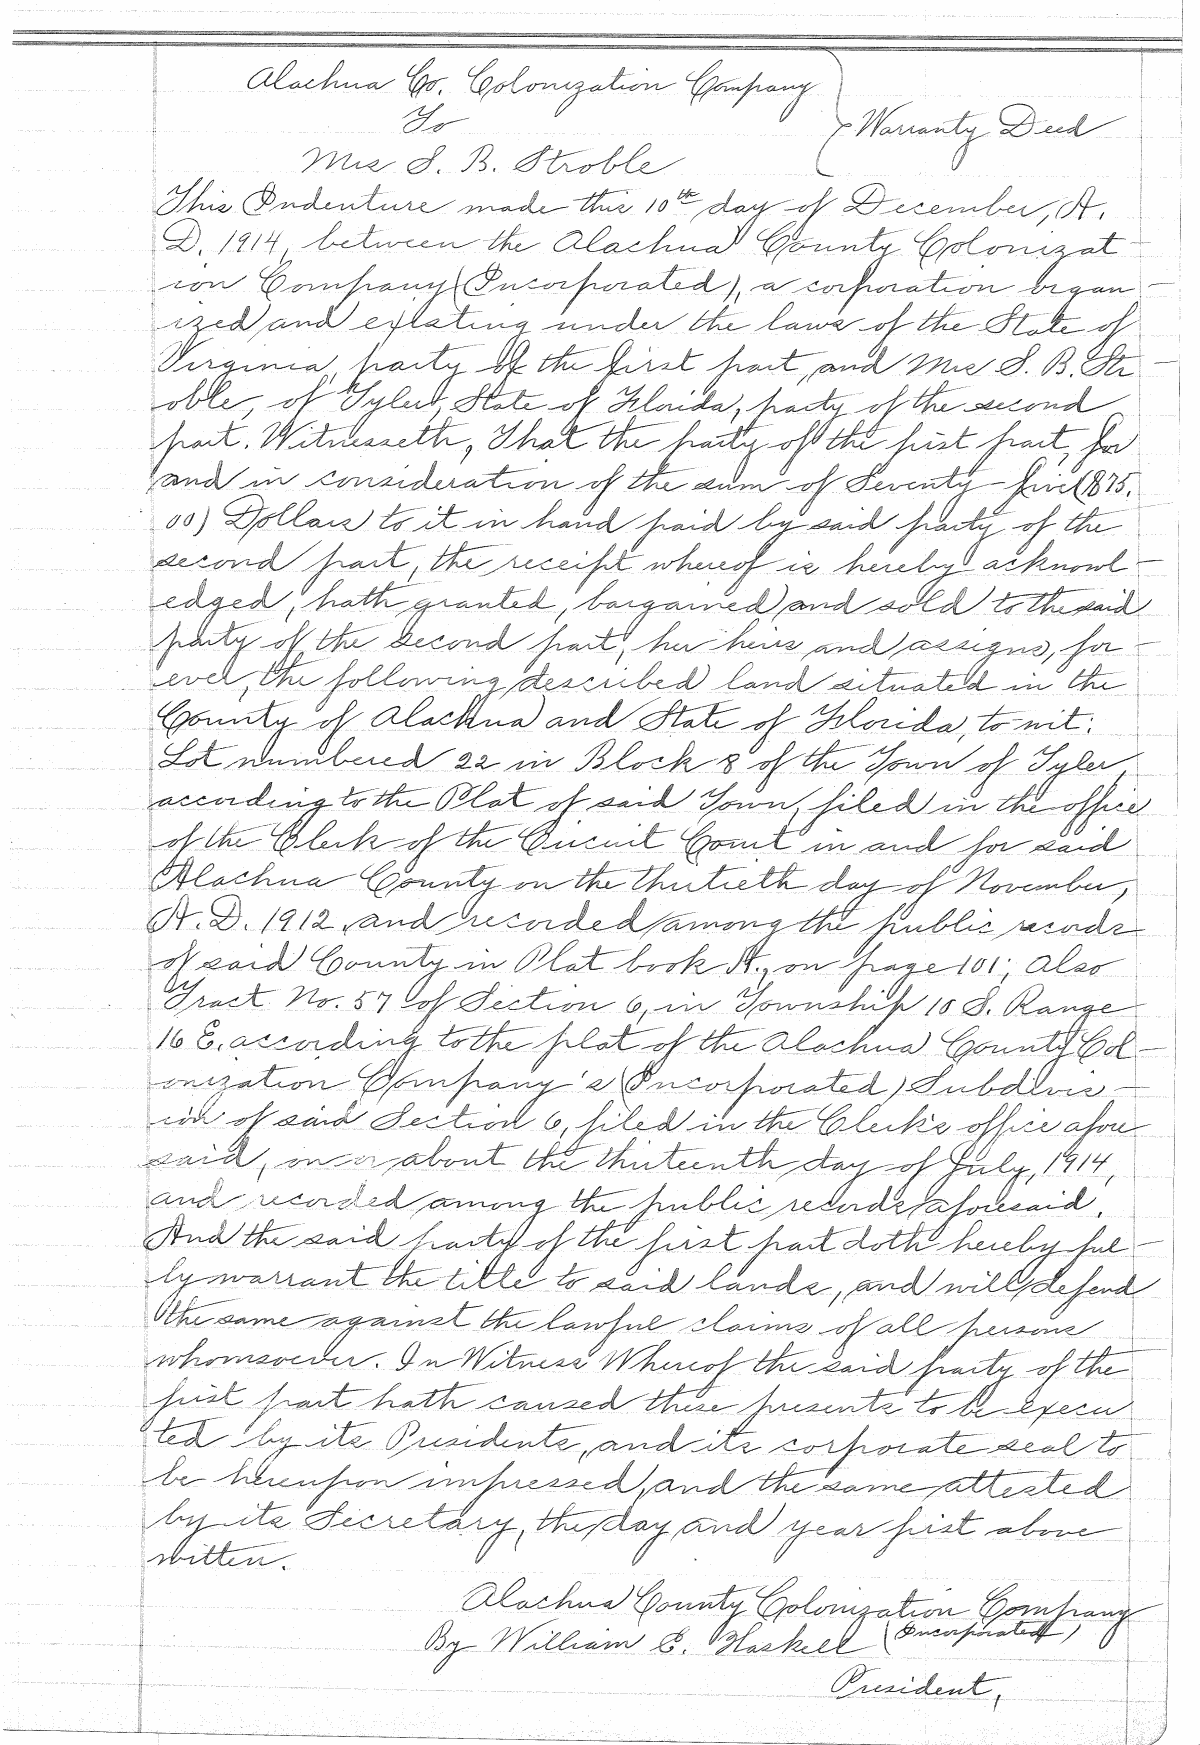 Alachua Co. Colonization Company
To
Warranty Deed
Mrs S. B. Stroble
This Indenture made this 10th day of December, A.
D. 1914, between the Alachua County Colonizat
ion Company (Incorporated), a corporation organ-
ized and existing under the laws of the State of
Virginia, party of the first part, and Mrs S. B. Str
oble, of Tyler, State of Florida, party of the second
part. Witnesseth, That the party of the first part, for
and in consideration of the sum of Seventy-five ($75.
00) Dollars to it in hand paid by said party of the
second part, the receipt whereof is hereby acknowl-
edged, hath granted, bargained and sold to the said
party of the second part, her heirs and assigns, for-
ever, the following described land situated in the
County of Alachua and State of Florida, to wit:
Lot numbered 22 in Block 8 of the Town of Tyler,
according to the Plat of said Town, filed in the office
of the Clerk of the Circuit Court in and for said
Alachua County on the thirtieth day of November,
A. D. 1912, and recorded among the public records
of said County in Plat book A., on page 101; Also
Tract No. 57 of Section 6, in Township 10 S. Range
16 E. according to the plat of the Alachua County Col-
onization Company's (Incorporated) Subdivis-
ion of said Section 6, filed in the Clerk's office afore
said, on or about the thirteenth day of July, 1914,
and recorded among the public records aforesaid.
And the said party of the first part doth hereby ful-
ly warrant the title to said lands, and will defend
the same against the lawful claims of all persons
whomsoever. In Witness Whereof the said party of the
first part hath caused these presents to be execu
ted by its Presidents, and its corporate seal to
be hereupon impressed, and the same attested
by its Secretary, the day and year first above
written.
Alachua County Colonization Company
By William E. Haskell (Incorporated)
President,